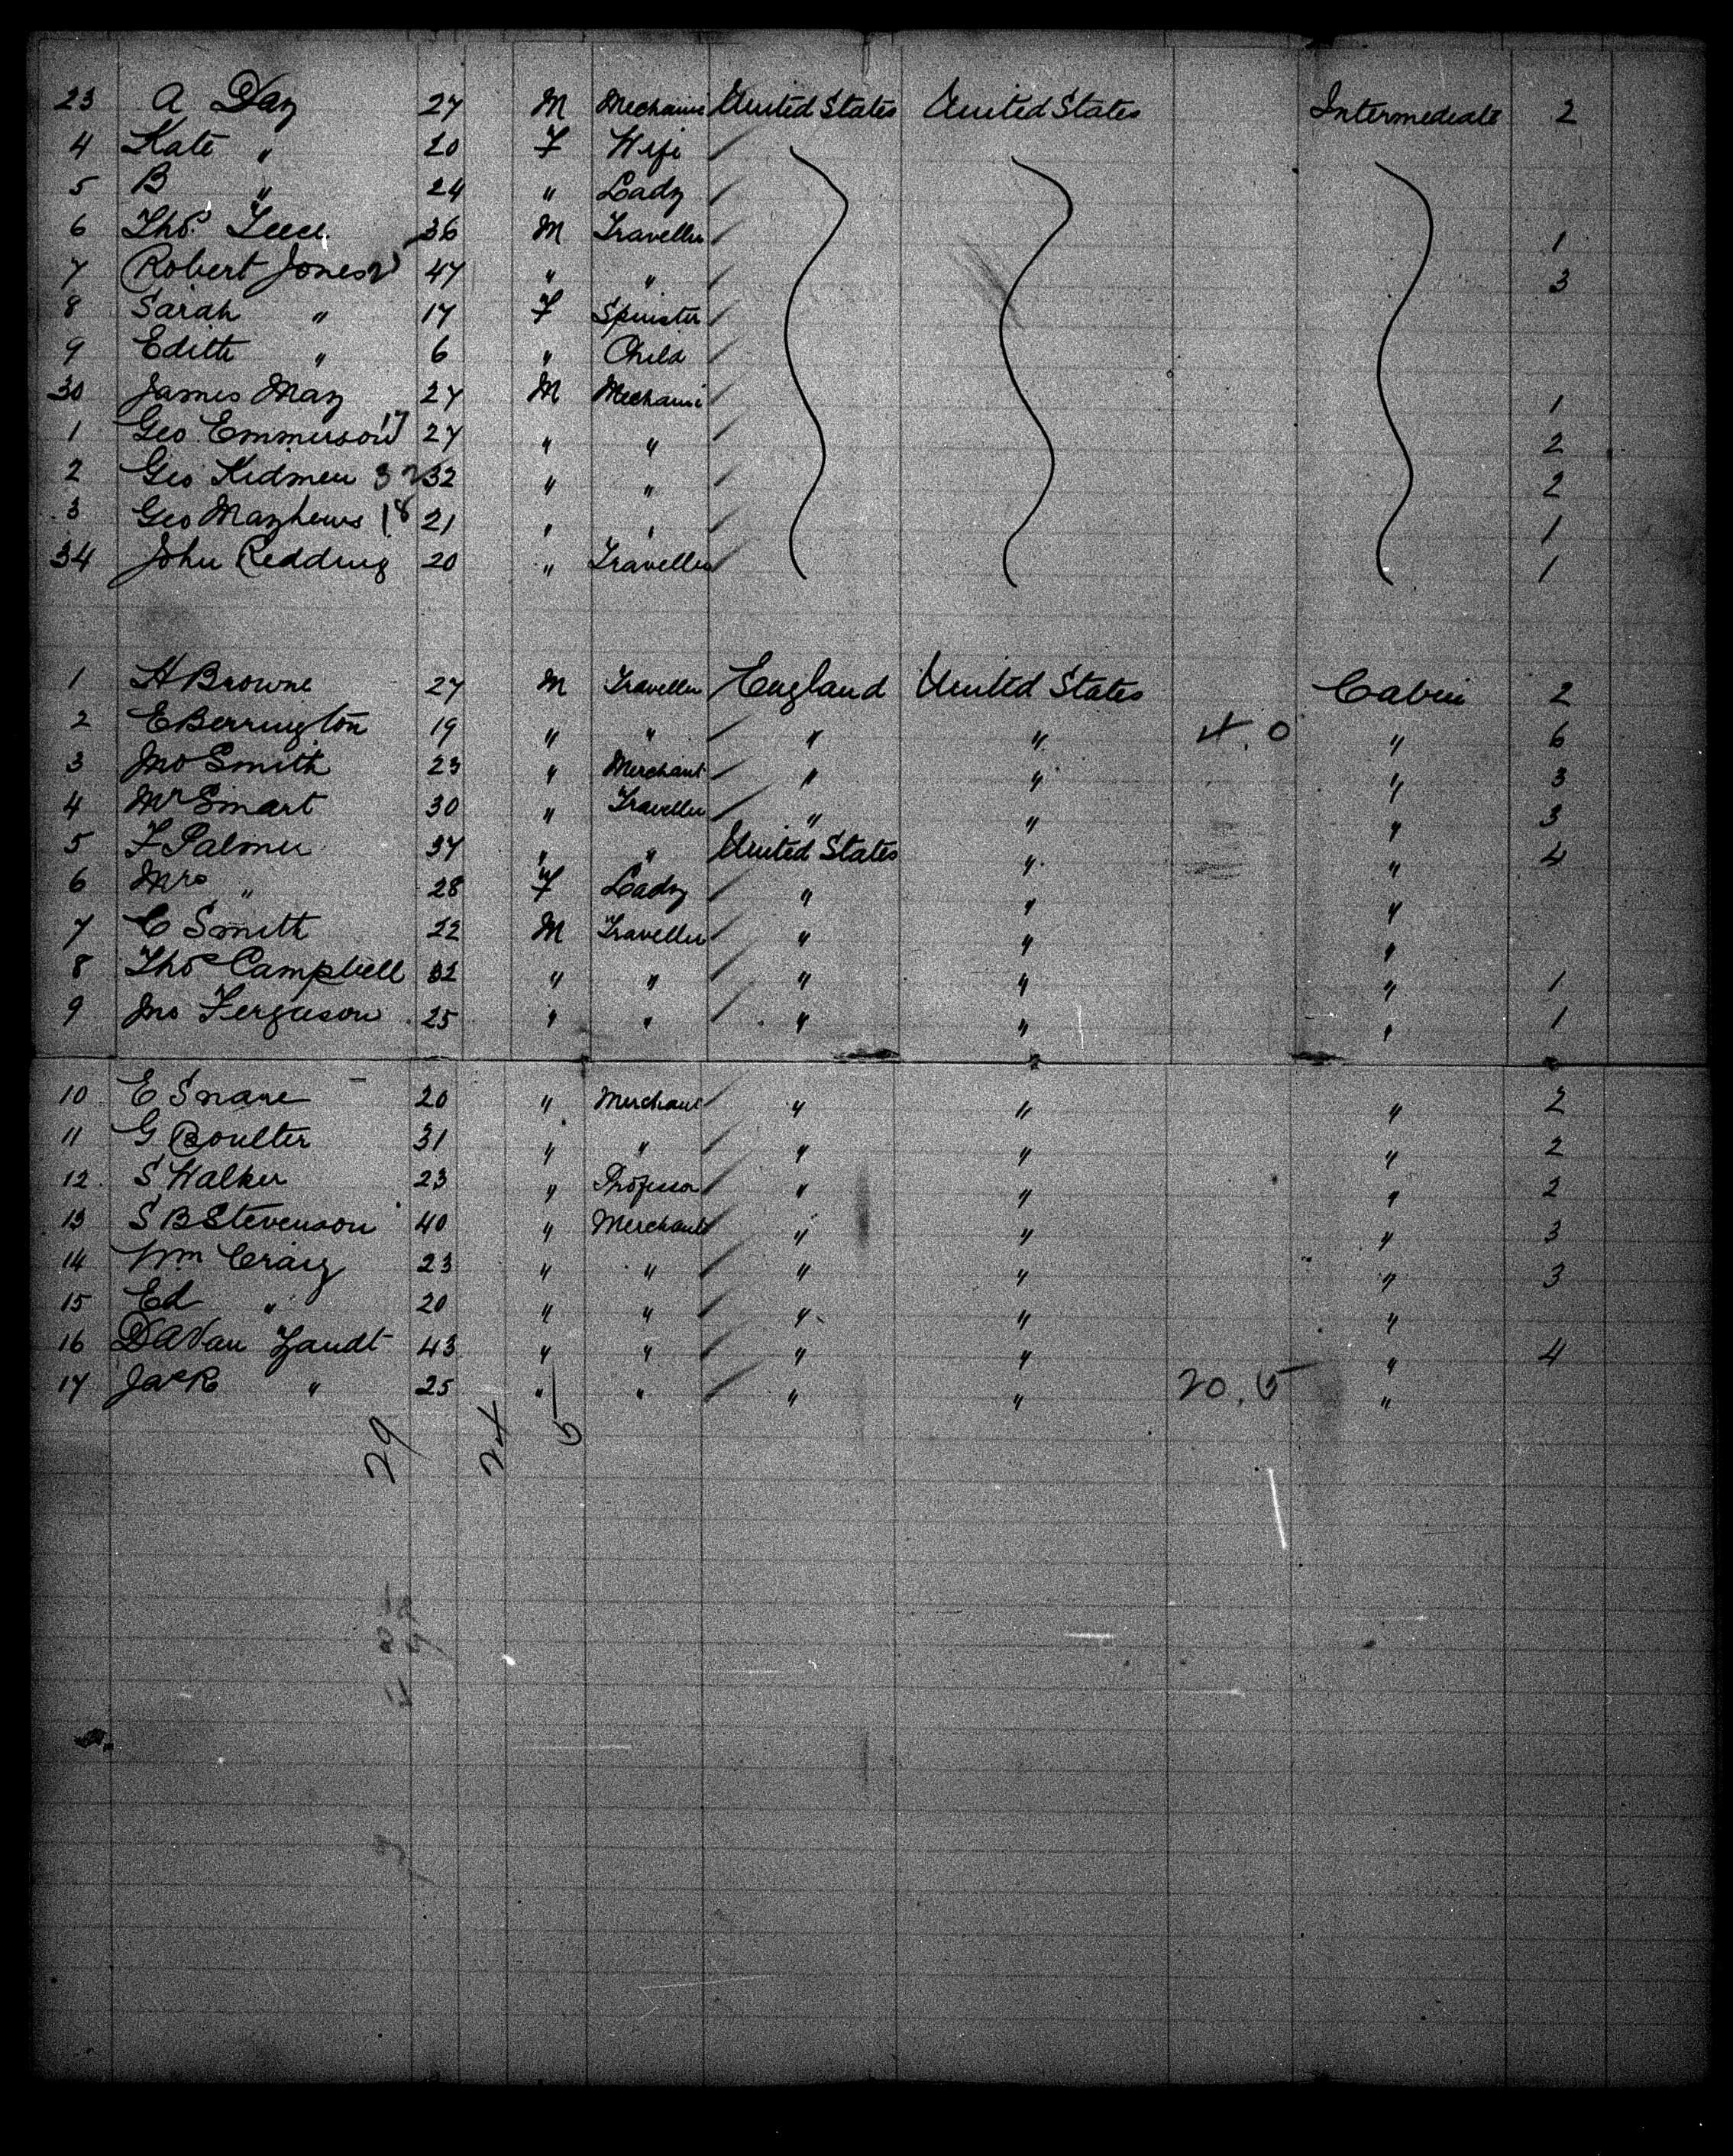 23 A Day 27 M Mechanic United States United States Intermediate 2
4 Kate " 20 F Wife
5 B " 24 " Lady
6 Thos 36 M Traveller 1
7 Robert Jones 47 " " 3
8 Sarah " 17 F Spinster
9 Edith " 6 " Child
30 James May 27 M Mechanic 1
1 Geo Emmerson 17 27 " " 2
2 Geo Kidmen 32 32 " " 2
3 Geo Mayhews 18 21 " " 1
34 John Redding 20 " Traveller 1
1 H Browne 27 M Traveller England United States Cabin 2
2 E Berrington 19 " " " " 4.0 " 6
3 Jno Smith 23 " Merchant " " " 3
4 Mr Smart 30 " Traveller " " " 3
5 F Palmer 37 " " United States " " 4
6 Mrs " 28 F Lady " " "
7 C Smith 22 M Traveller " " "
8 Thos Campbell 32 " " " " " 1
9 Jno Ferguson 25 " " " " " 1
10 E Snare 20 " Merchant " " " 2
11 G Boulter 31 " " " " " 2
12 S Walker 23 " Professor " " " 2
13 S B Stevenson 40 " Merchant " " " 3
14 Wm Craig 23 " " " " " 3
15 Ed " 20 " " " " "
16 D A Van Zandt 43 " " " " " 4
17 Jack " 25 " " " " 20.5 "
29 24 5